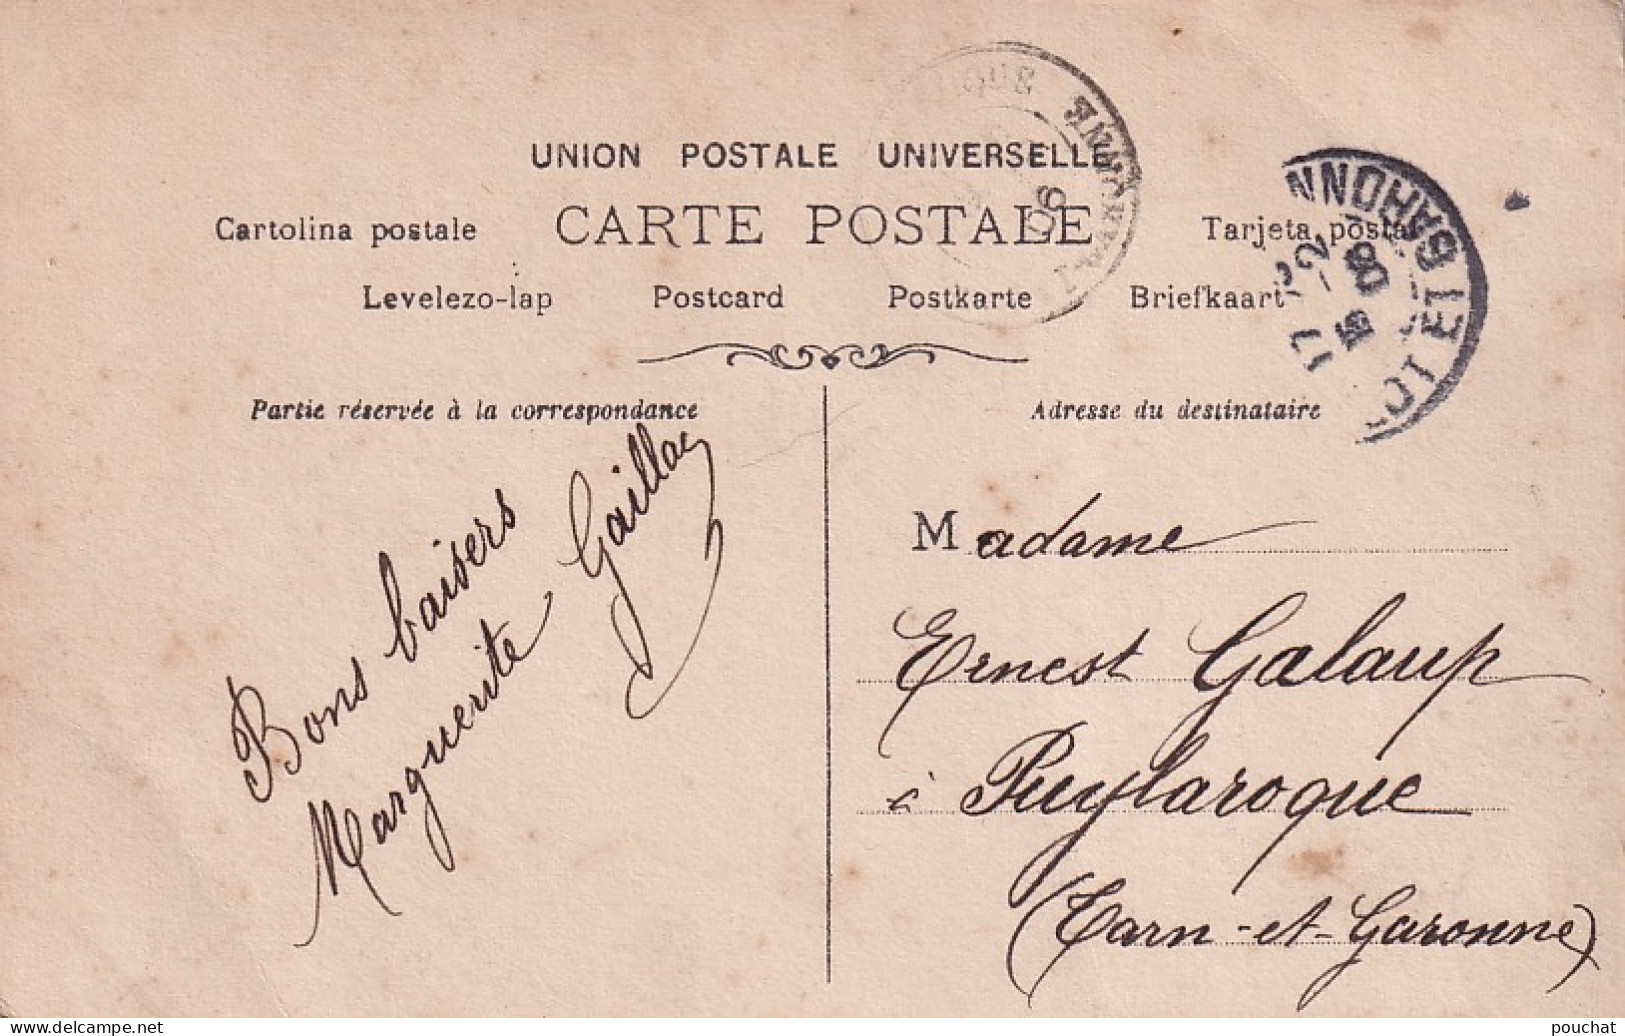 UNION POSTALE UNIVERSELLE
CARTE POSTALE
Cartolina postale
Tarjeta postal
Levelezo-lap Postcard Postkarte Briefkaart
Partie réservée à la correspondance
Bons baisers
Marguerite Gaillac
Adresse du destinataire
Madame
Ernest Galaup
à Puylaroque
(Tarn-et-Garonne)
17 15
5 -2
08
08
delcampe.net
pouchat